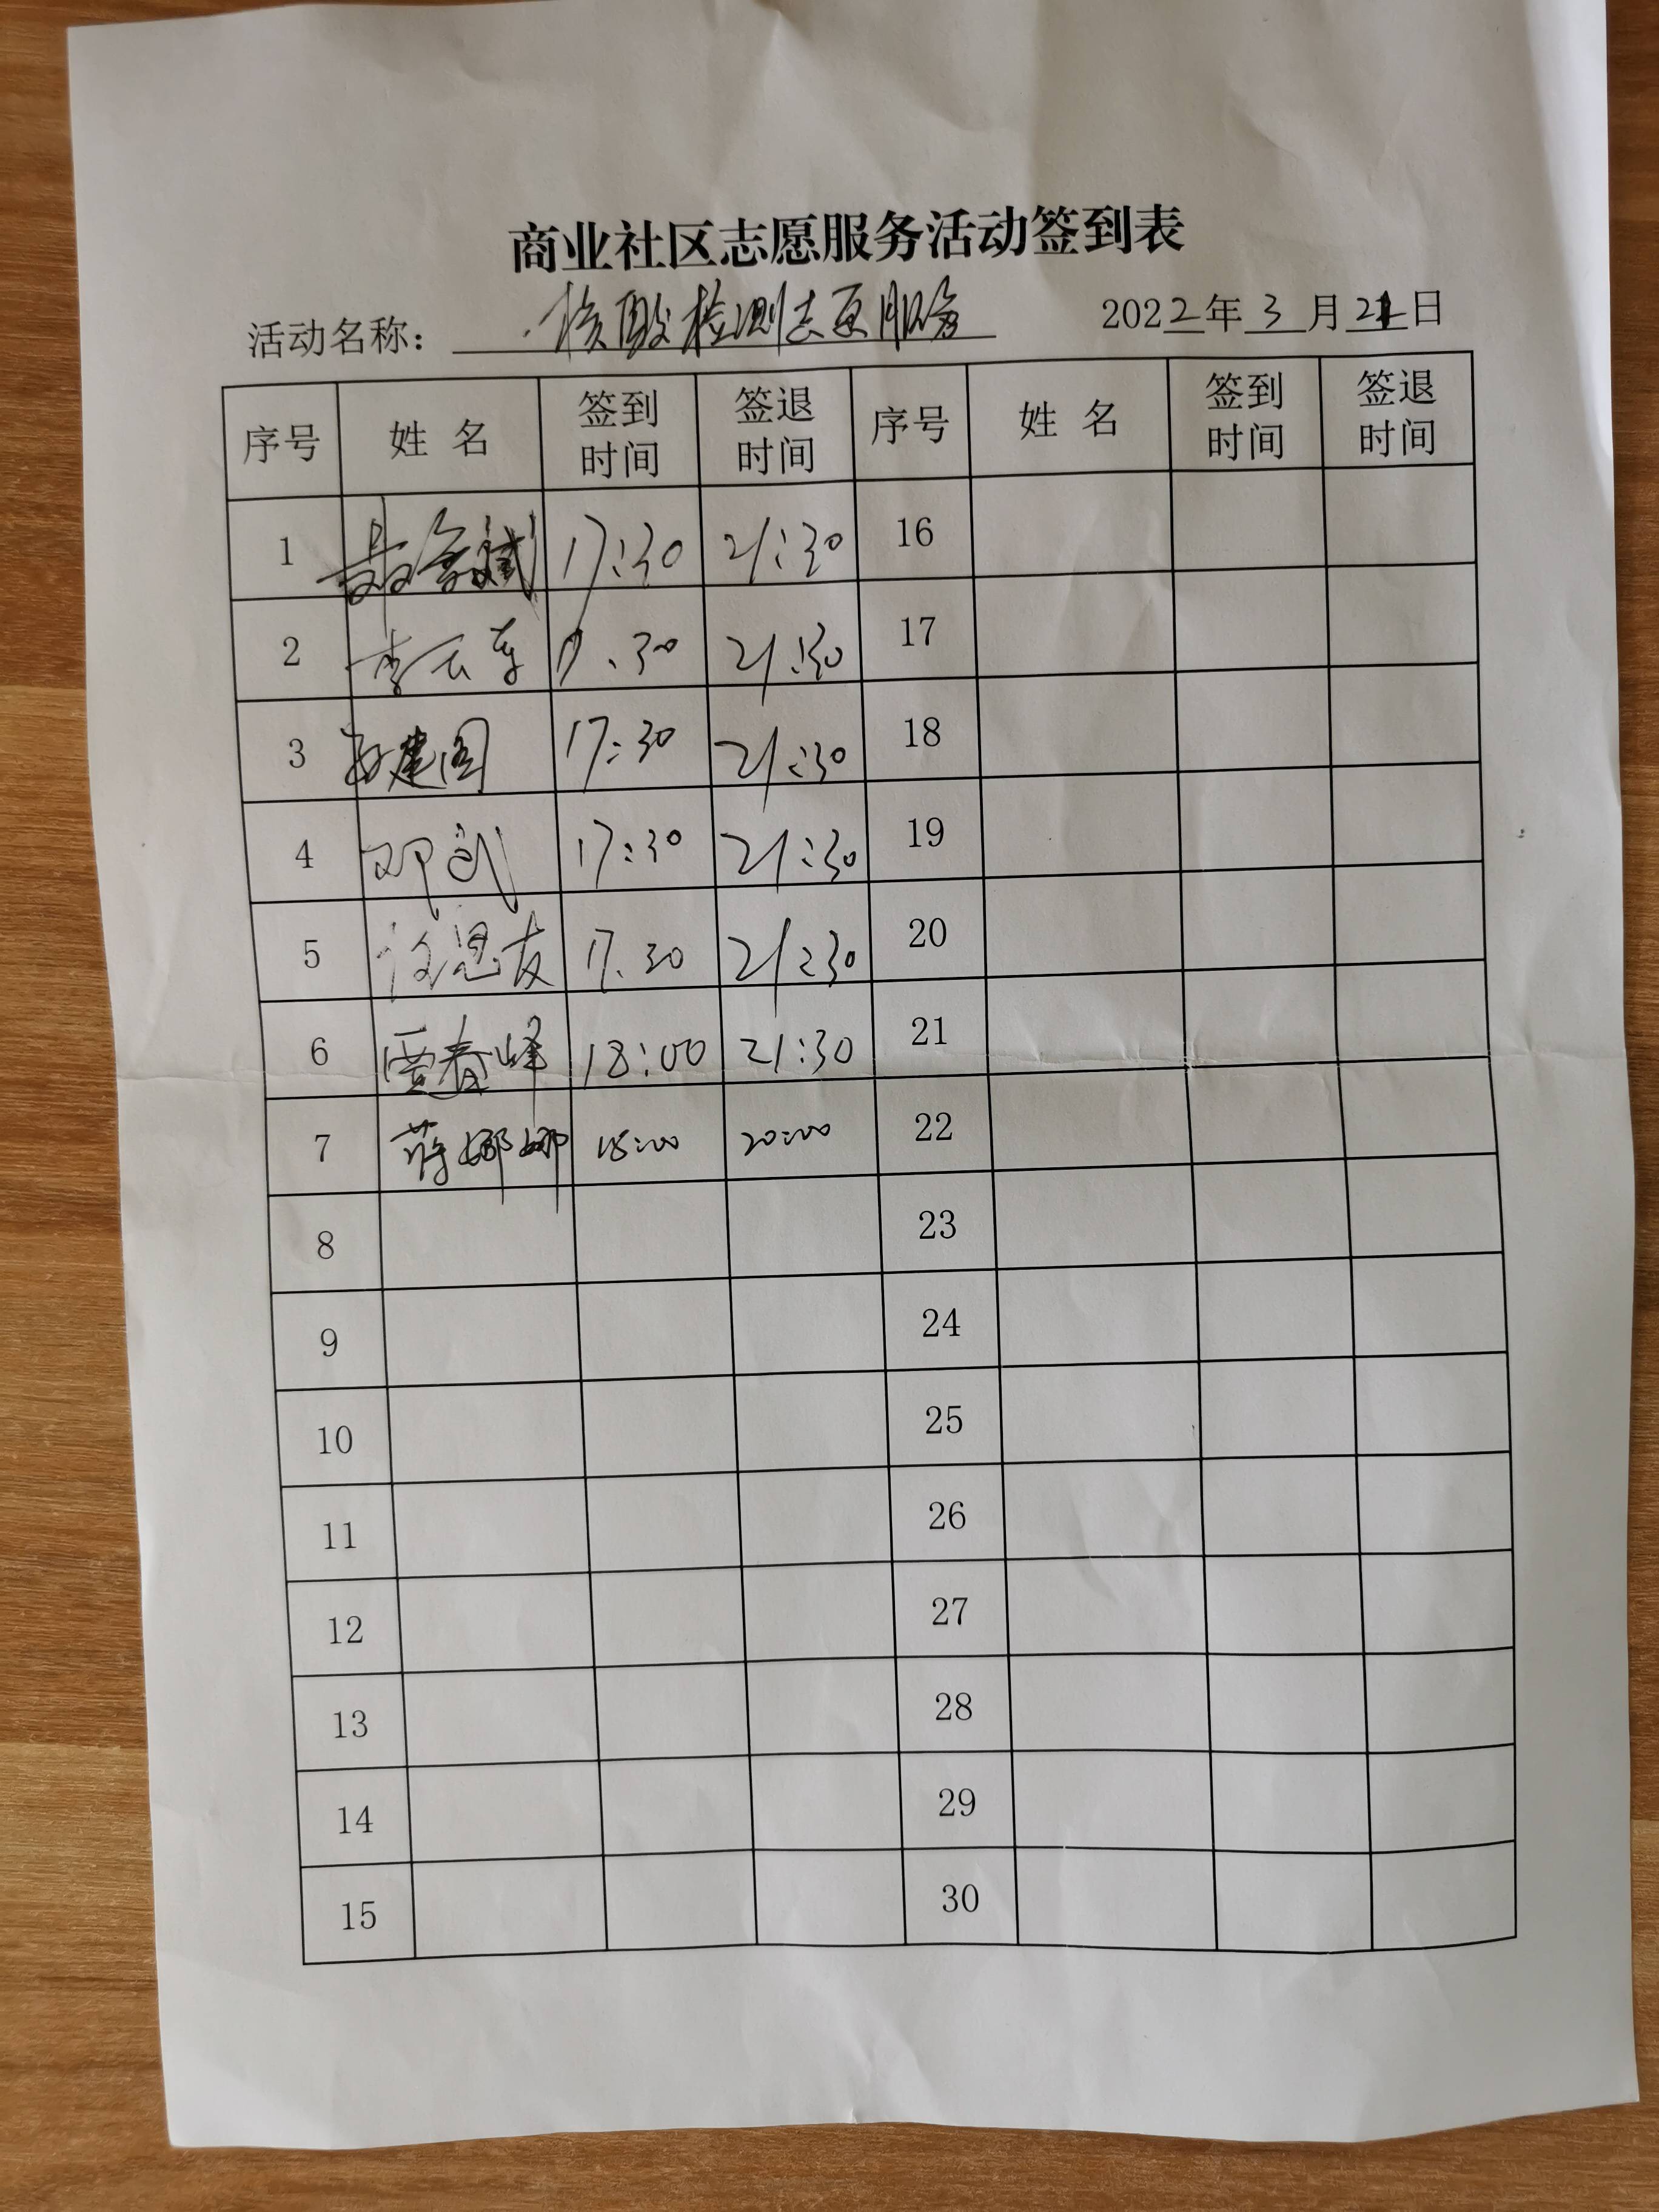 商业社区志愿服务活动签到表
活动名称： 核酸检测志愿服务 2022年3月21日
序号 姓名 签到时间 签退时间 序号 姓名 签到时间 签退时间
1 17:30 21:30 16
2 李云春 17:30 21:30 17
3 孙建国 17:30 21:30 18
4 邓武 17:30 21:30 19
5 徐恩友 17:30 21:30 20
6 贾春峰 18:00 21:30 21
7 蒋娜娜 18:00 20:00 22
8 23
9 24
10 25
11 26
12 27
13 28
14 29
15 30